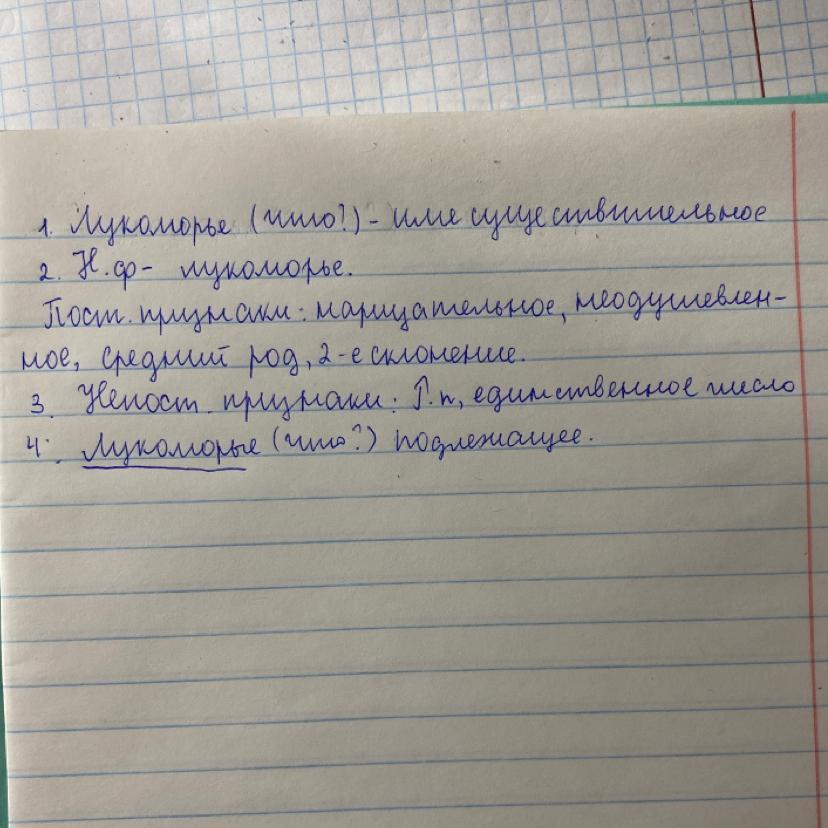 1. Лукоморье (что?) - име существительное
2. Н.ф- лукоморье.
Пост. признаки: нарицательное, неодушевлен-
ное, средний род, 2-е склонение.
3. Непост. признаки: Р.п, единственное число
4. Лукоморые (что?) подлежащее.